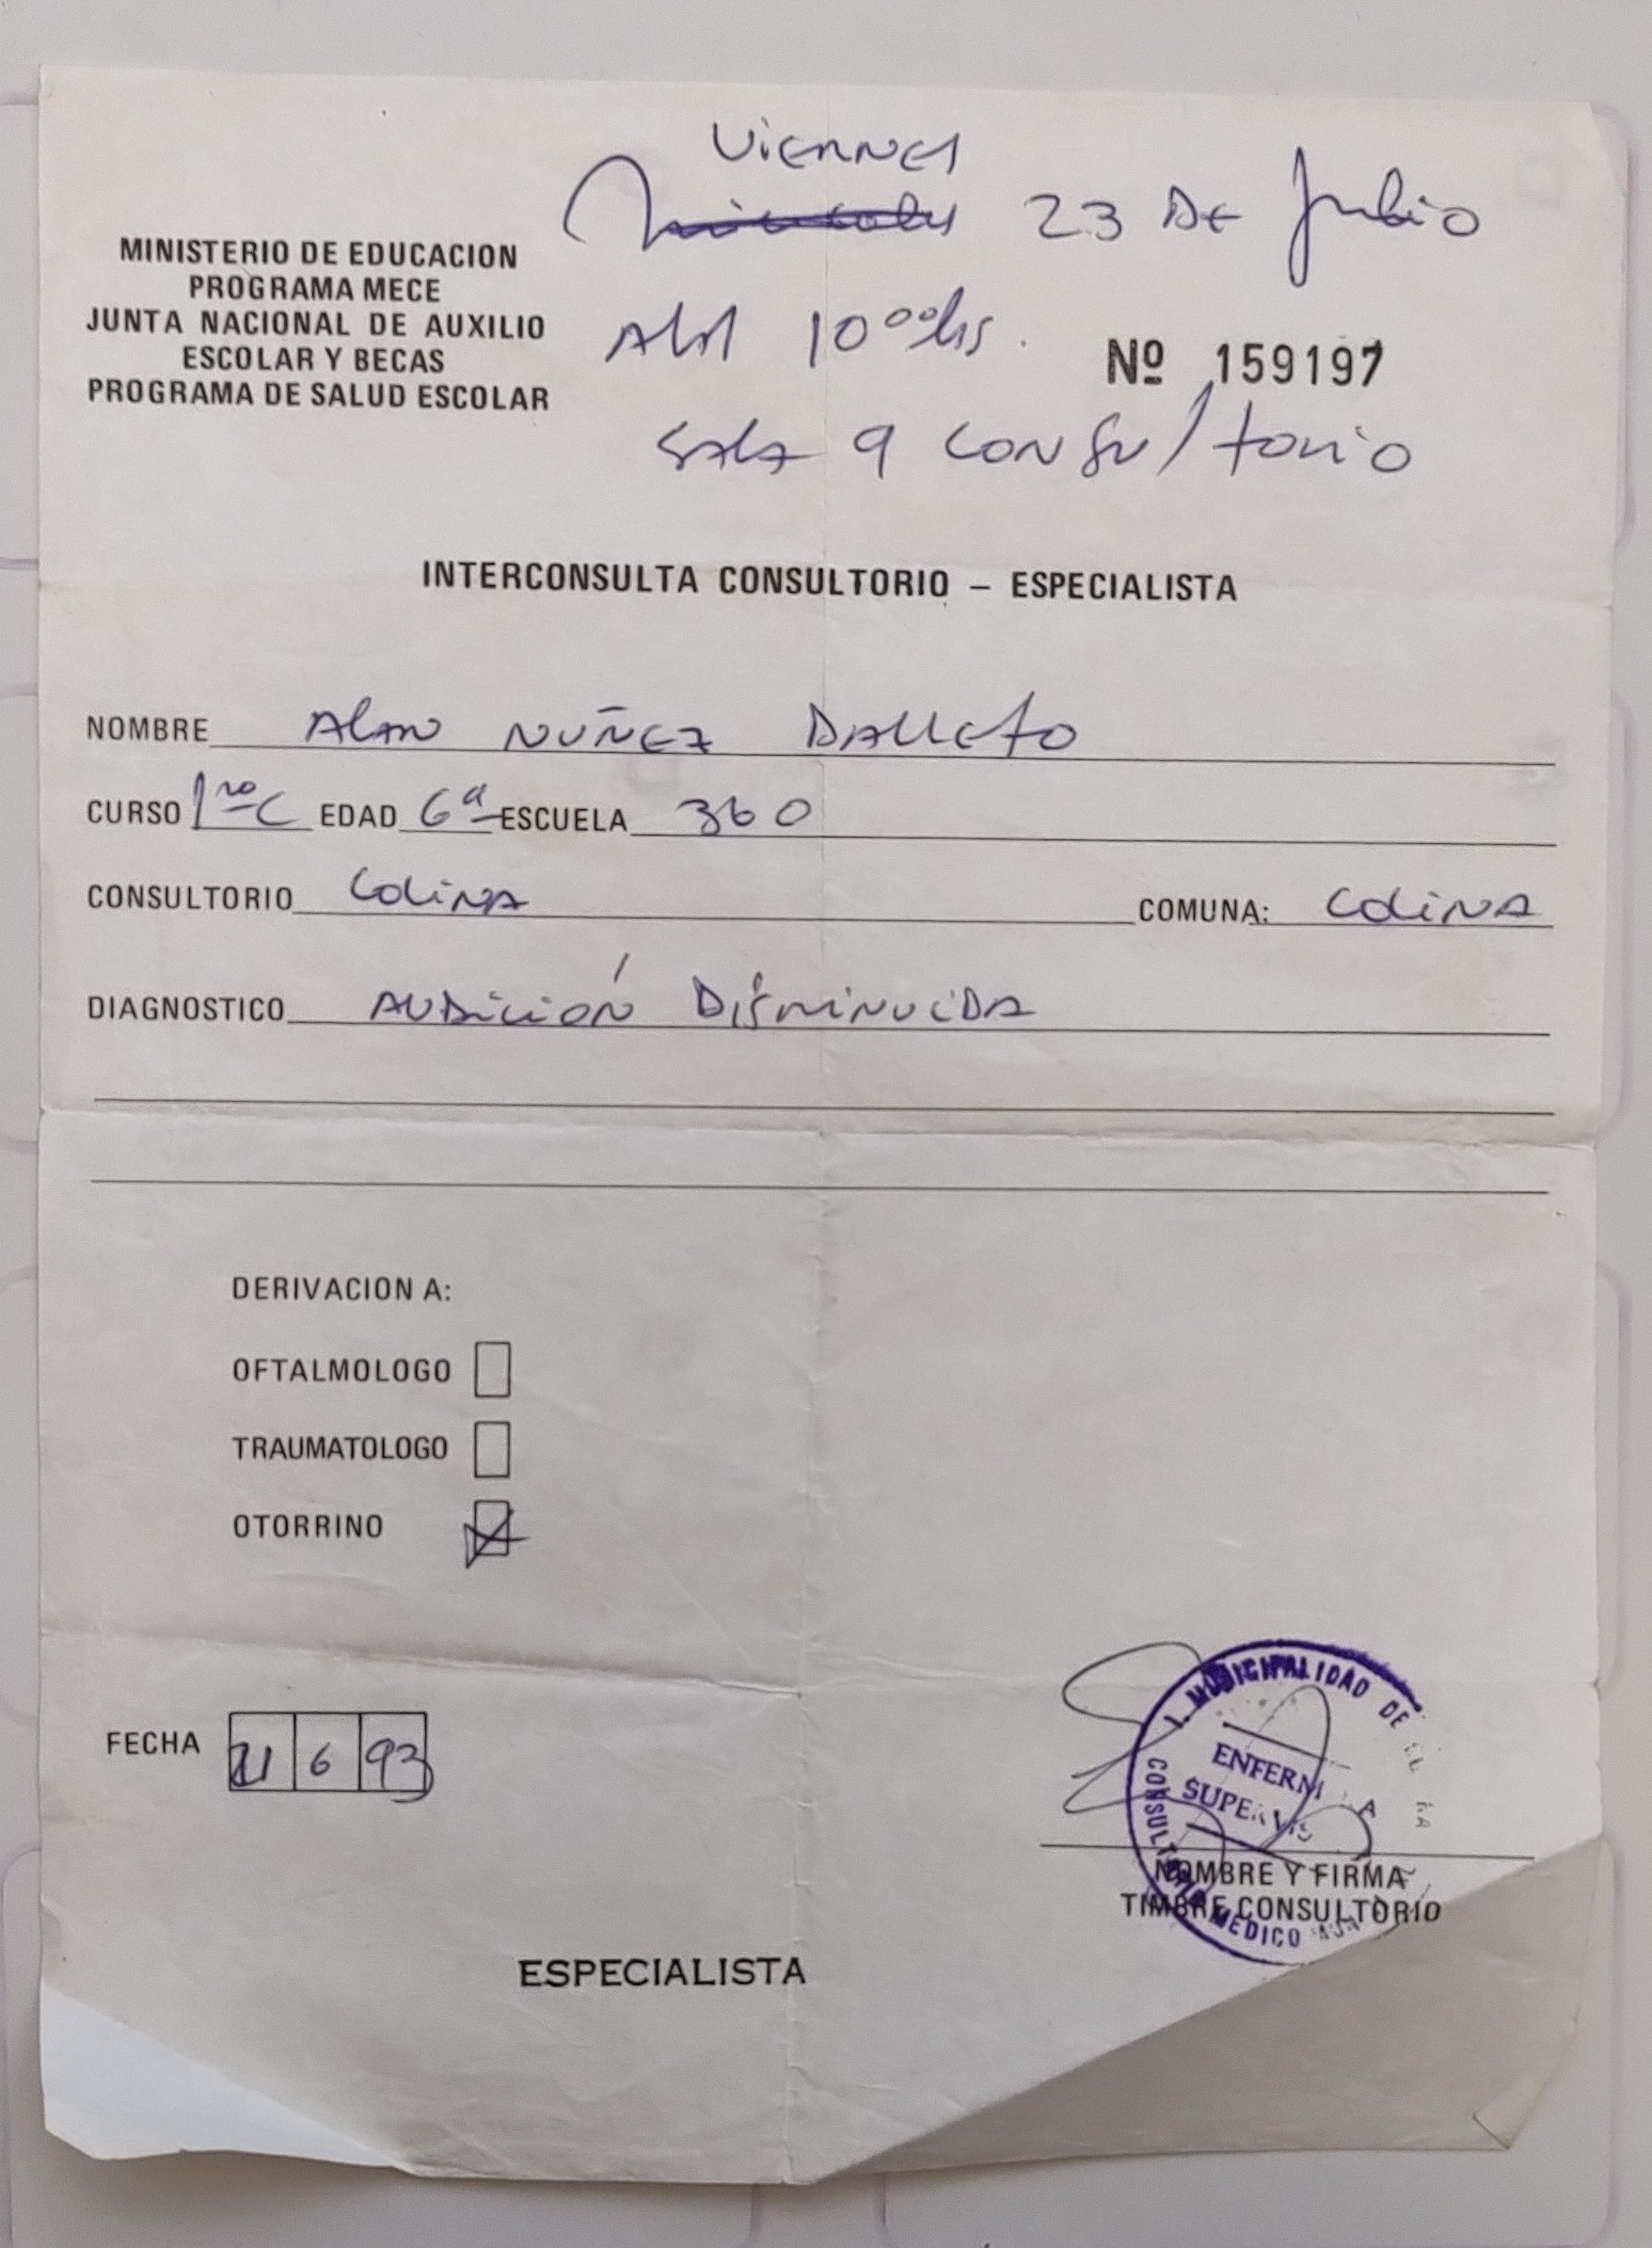 Viernes
miercoles 23 DE Julio
MINISTERIO DE EDUCACION
PROGRAMA MECE
JUNTA NACIONAL DE AUXILIO
ESCOLAR Y BECAS
PROGRAMA DE SALUD ESCOLAR
Alas 10°° hs.
Nº 159197
Sala 9 consultorio
INTERCONSULTA CONSULTORIO – ESPECIALISTA
NOMBRE Alan NUÑEZ
CURSO 1ro C EDAD 6a ESCUELA 360
CONSULTORIO Colina COMUNA: Colina
DIAGNOSTICO AUDICIÓN DISMINUIDA
DERIVACION A:
OFTALMOLOGO
TRAUMATOLOGO
OTORRINO
FECHA 21 6 93
I. MUNICIPALIDAD DE
CONSULTORIO MEDICO
NOMBRE Y FIRMA
TIMBRE CONSULTORIO
ESPECIALISTA